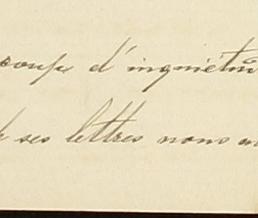 coup d'inquiétu
ses lettres nous